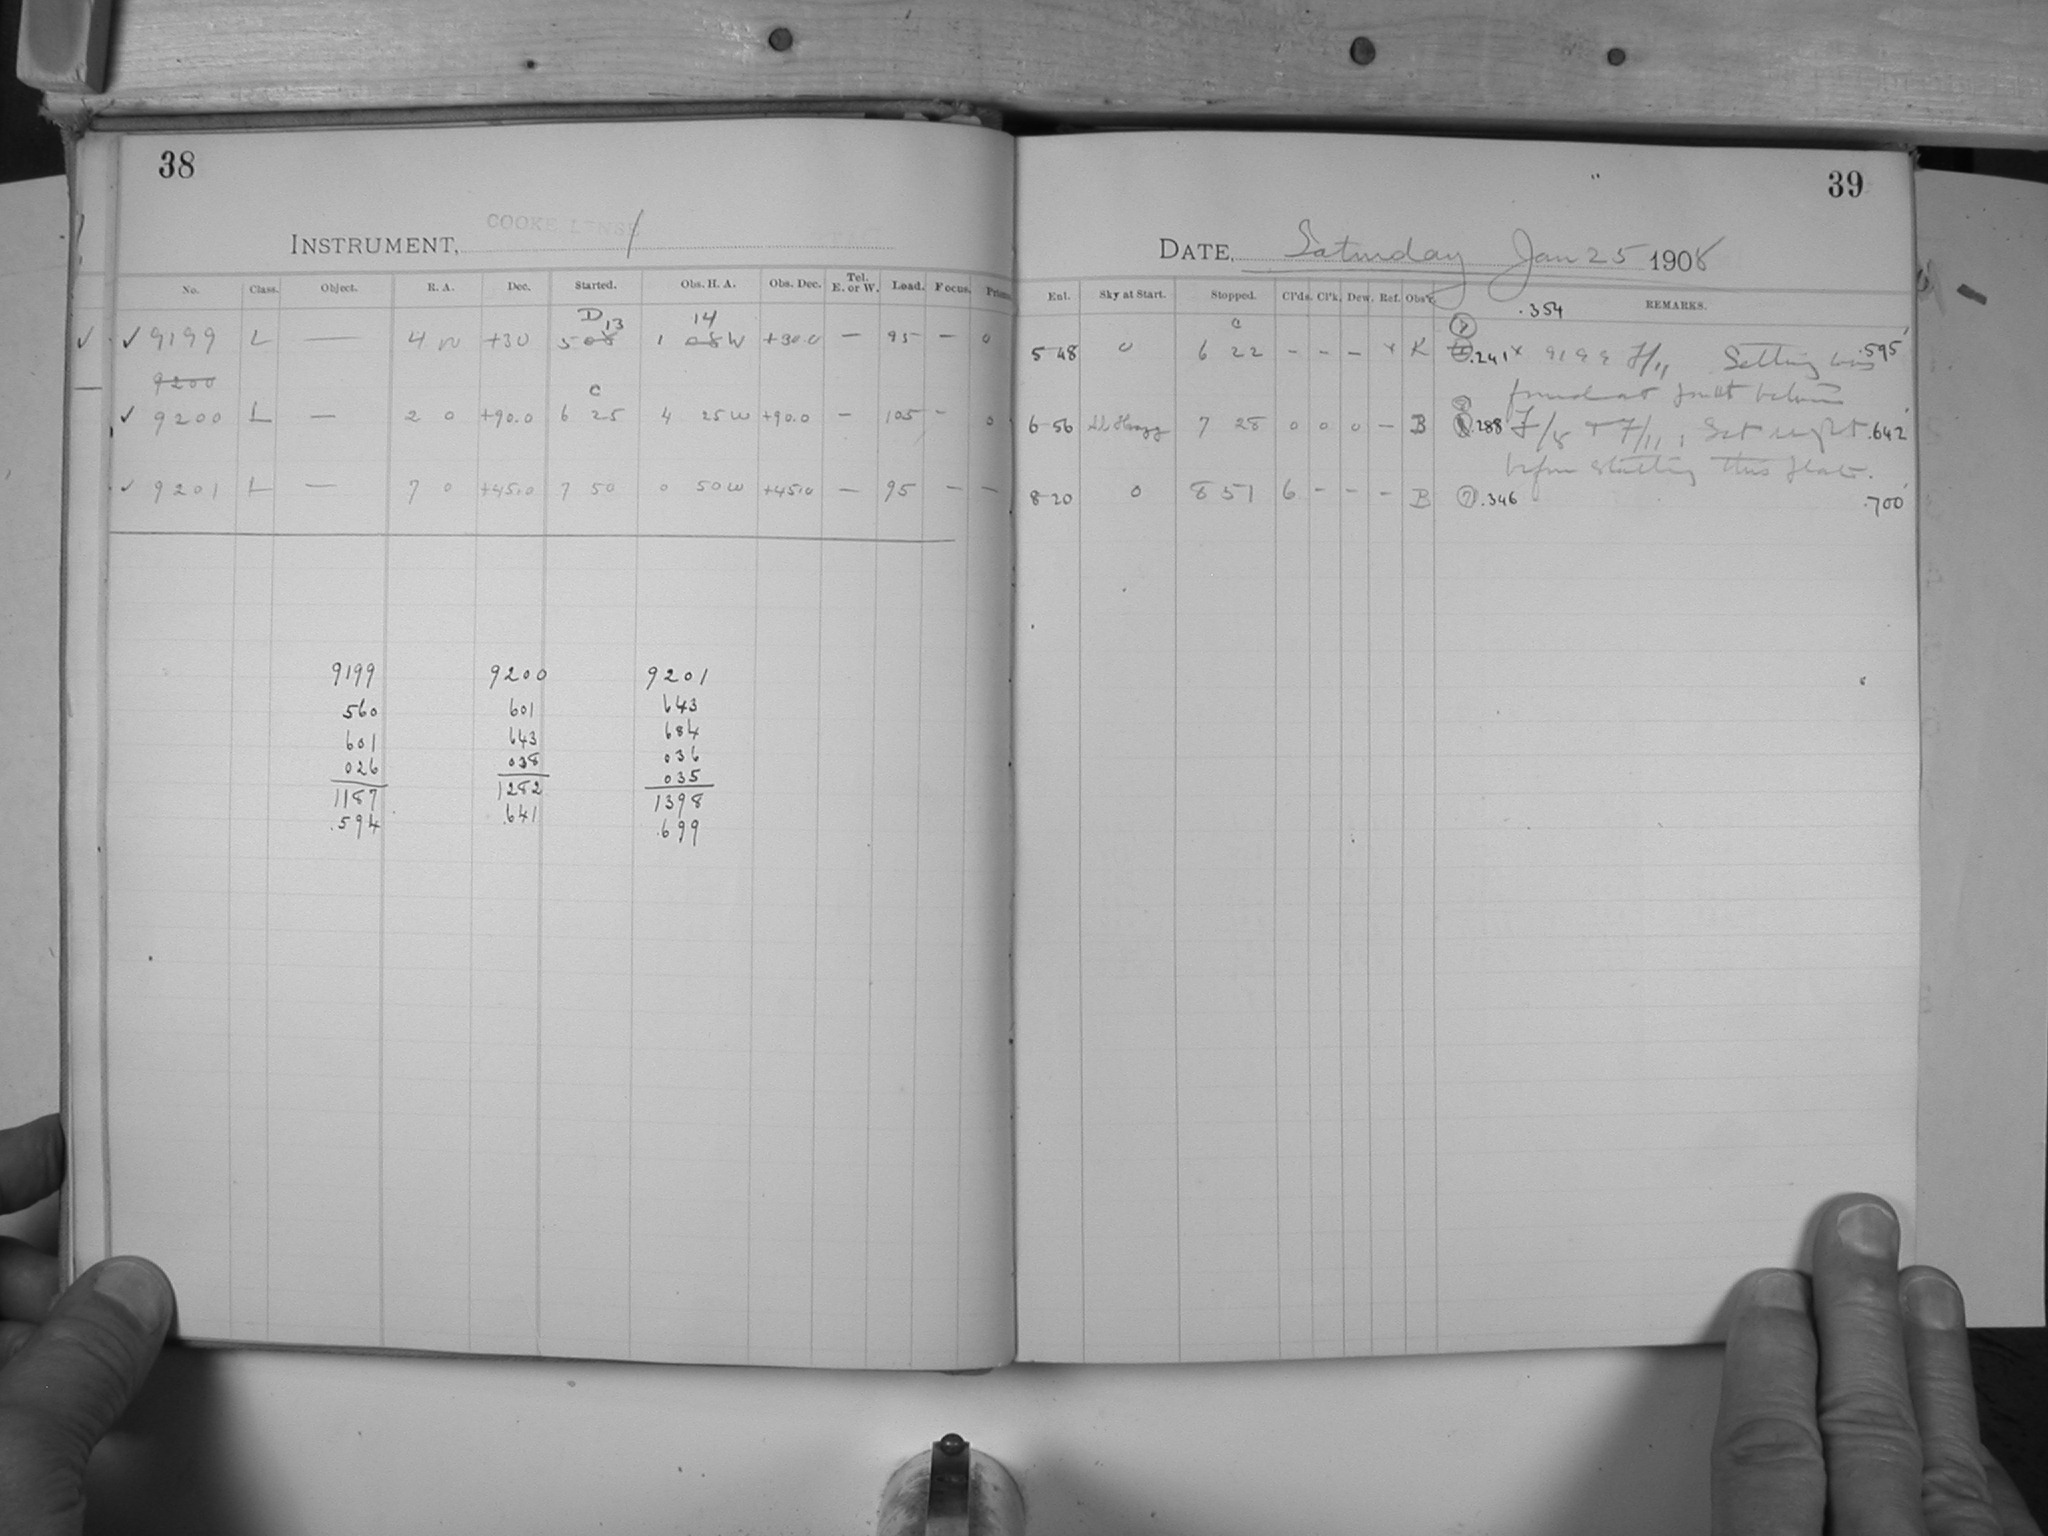 38
COOKE LENSE
INSTRUMENT,
No. Class. Object. R. A. Dec. Started. Obs. H. A. Obs. Dec. Tel. E. or W. Load. Focus. Prism.
D 13 14
✓ ✓ 9199 L — 4 +30 5 08 1 08 W +30.0 — 95 — 0
9200 C
✓ 9200 L — 2 0 +90.0 6 25 4 25 W +90.0 — 105 - 0
✓ 9201 L — 7 0 +45.0 7 50 0 50 W +45.0 — 95 — —
9199 9200 9201
560 601 643
601 643 684
026 038 036
035
1187 1282 1398
.594 .641 .699
39
DATE, Saturday Jan 25 1908
Ent. Sky at Start. Stopped. Cl'ds. Cl'k. Dew. Ref. Obs'r. REMARKS.
.354
C
5-48 0 6 22 - - - x K .241 x 9199 F/11 Setting was .595
found at point between
6-56 Sl Hazy 7 28 0 0 0 - B .288 F/8 + F/11, Set right .642
before starting this plate.
8-20 0 8 51 6 - - - B (7) .346 .700